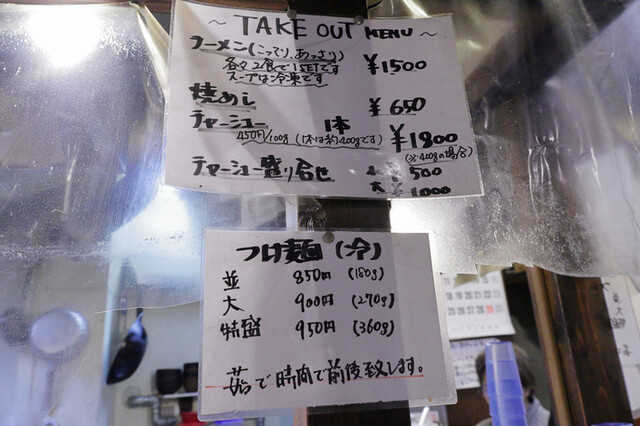 ～ TAKE OUT MENU ～
ラーメン(こってり、あっさり) ¥1500
各々2食で1SETです
スープは冷凍です
焼めし ¥650
チャーシュー 1本 ¥1800
450円/100g (1本は約400gです) (※400gの場合)
チャーシュー盛り合せ 小 ¥500
大 ¥1000
つけ麺(冷)
並 850円 (180g)
大 900円 (270g)
特盛 950円 (360g)
茹で時間で前後致します。
並
大